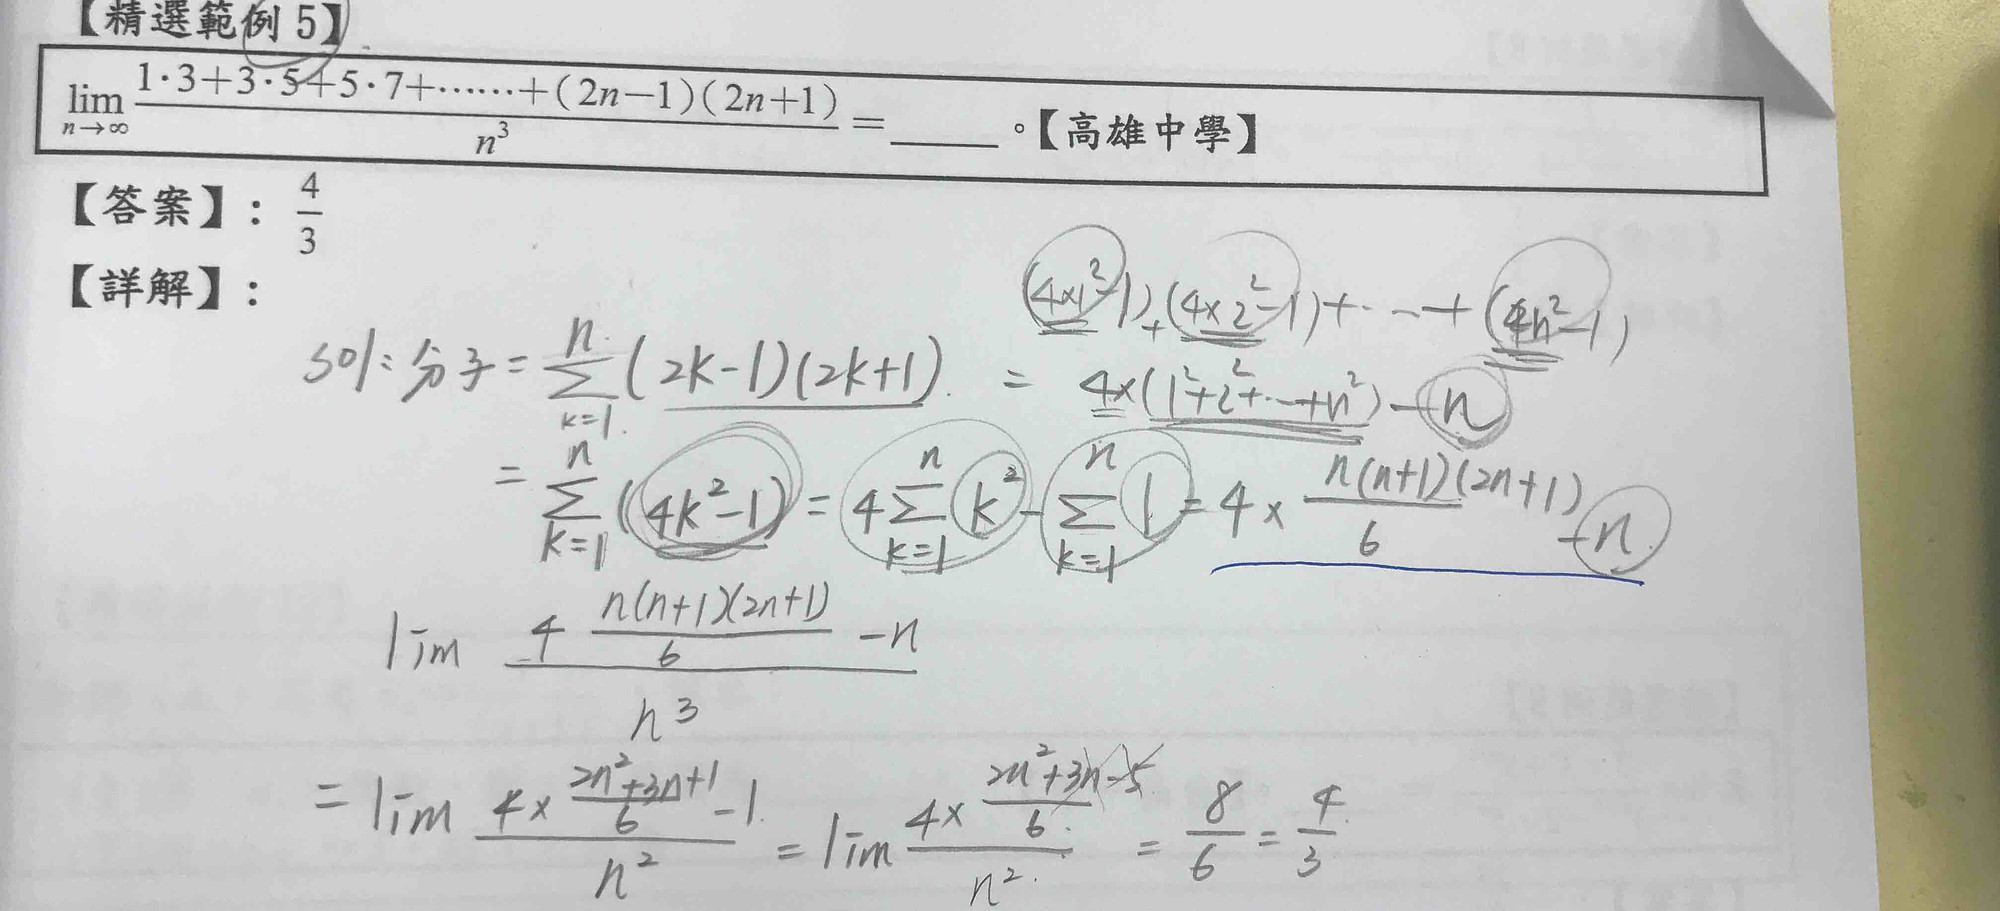 【精選範例 5】
lim n→∞ 1·3+3·5+5·7+……+(2n−1)(2n+1) / n³ = ______。【高雄中學】
【答案】: 4/3
【詳解】:
(4×1²-1)+(4×2²-1)+...+(4n²-1)
sol: 分子 = n Σ k=1 (2k-1)(2k+1) = 4×(1²+2²+...+n²)-n
= n Σ k=1 (4k²-1) = 4 n Σ k=1 k² - n Σ k=1 1 = 4 × n(n+1)(2n+1) / 6 - n
lim 4 n(n+1)(2n+1) / 6 - n / n³
= lim 4× 2n²+3n+1 / 6 -1 / n² = lim 4× 2n²+3n-5 / 6 / n² = 8/6 = 4/3